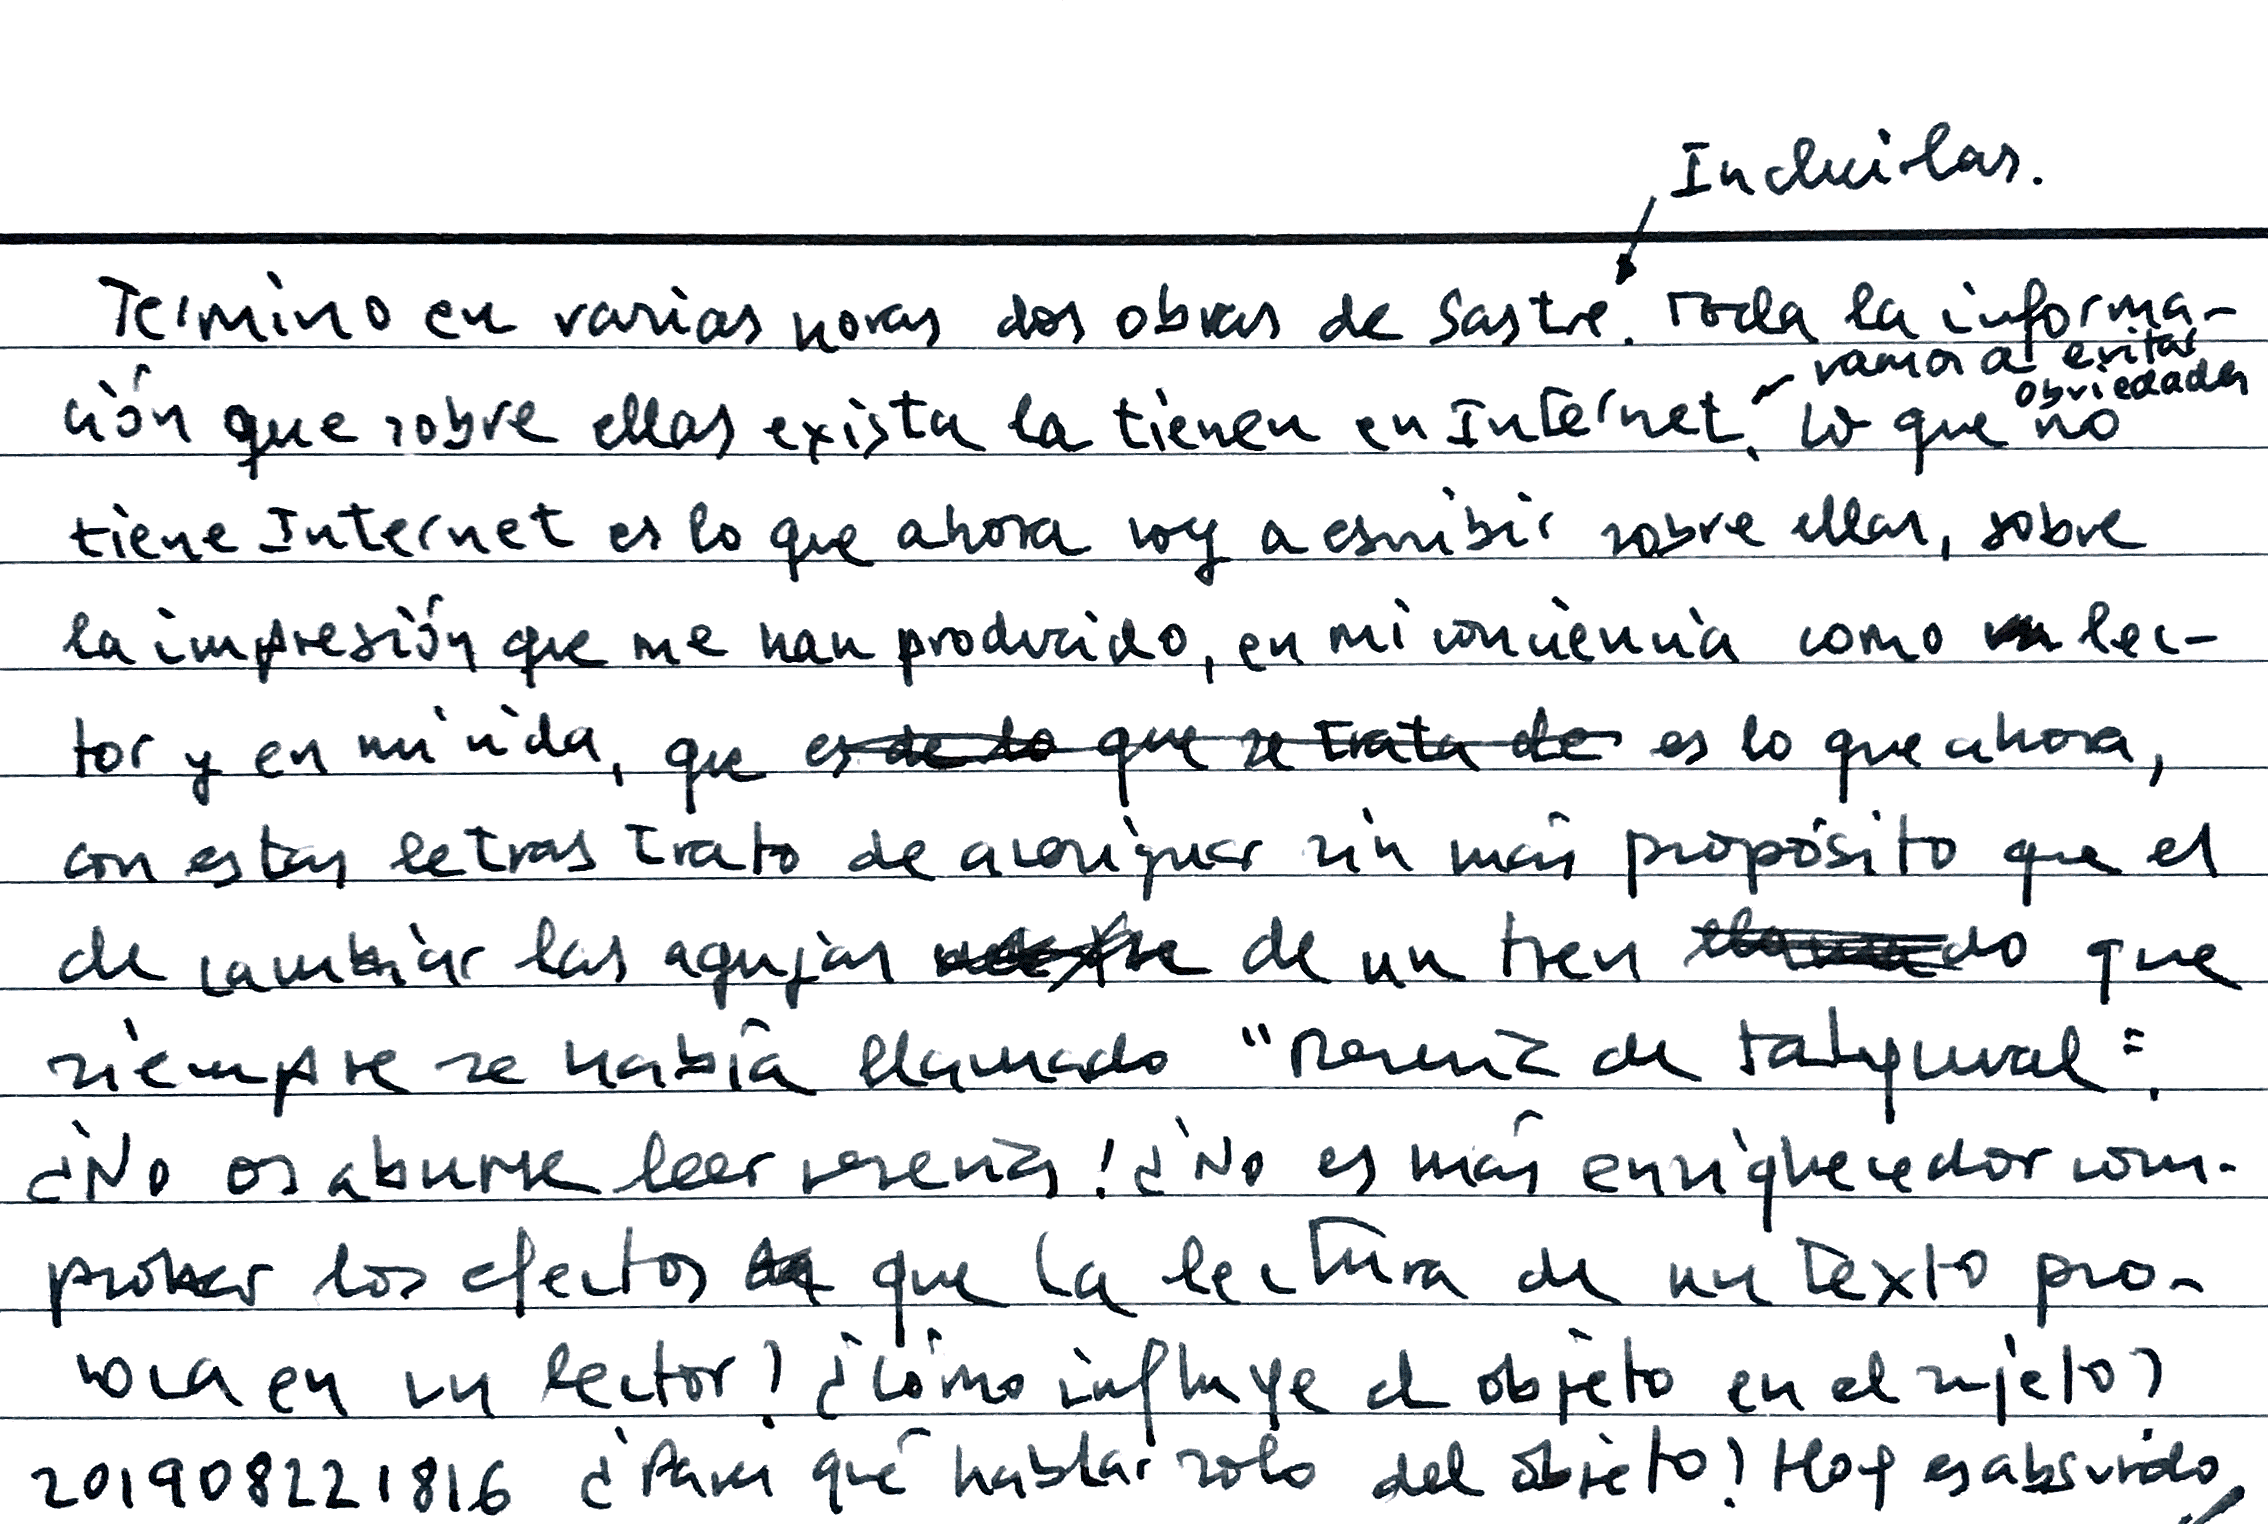 Incluirlas.
Termino en varias horas dos obras de Sastre. Toda la informa-
ción que sobre ellas exista la tienen en Internet. Lo que no
vamos a evitar
obviedades
tiene Internet es lo que ahora voy a escribir sobre ellas, sobre
la impresión que me han producido, en mi conciencia como lec-
tor y en mi vida, que es de lo que se trata de es lo que ahora,
con estas letras trato de averiguar sin más propósito que el
de cambiar las agujas de un tren llamado que
siempre se había llamado "Reseña de tal y cual".
¿No os aburre leer reseñas? ¿No es más enriquecedor com-
probar los efectos que la lectura de un texto pro-
voca en un lector? ¿Cómo influye el objeto en el sujeto?
201908221816 ¿Para qué hablar solo del objeto? Hoy es absurdo